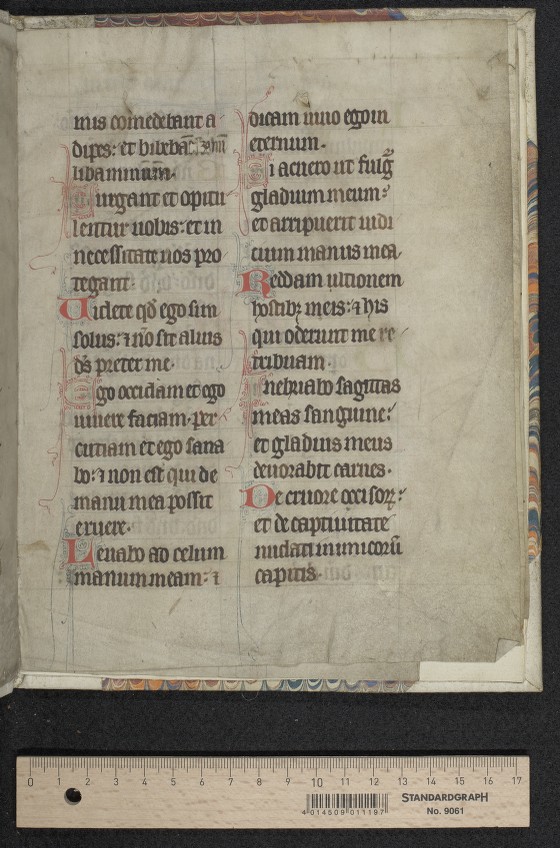 mis comedebant a
dipes: et bibebāt
libaminum.
Surgant et opitu
lentur uobis: et in
necessitate uos pro
tegant:
Uidete qd ego sim
solus: ⁊ nō sit alius
ds preter me.
Ego occidam et ego
uiuere faciam. per
cutiam et ego sana
bo: ⁊ non est qui de
manu mea possit
eruere.
Leuabo ad celum
manum meam: ⁊
dicam uiuo ego in
eternum.
Si acuero ut fulgꝰ
gladium meum:
et arripuerit iudi
cium manus mea.
Reddam ultionem
hostibꝫ meis: ⁊ his
qui oderunt me re
tribuam.
Inebriabo sagittas
meas sanguine:
et gladius meus
deuorabit carnes.
De cruore occisoꝝ:
et de captiuitate
nudati inimicorū
capitis.
0 1 2 3 4 5 6 7 8 9 10 11 12 13 14 15 16 17
STANDARDGRAPH
No. 9061
4 014509 011197